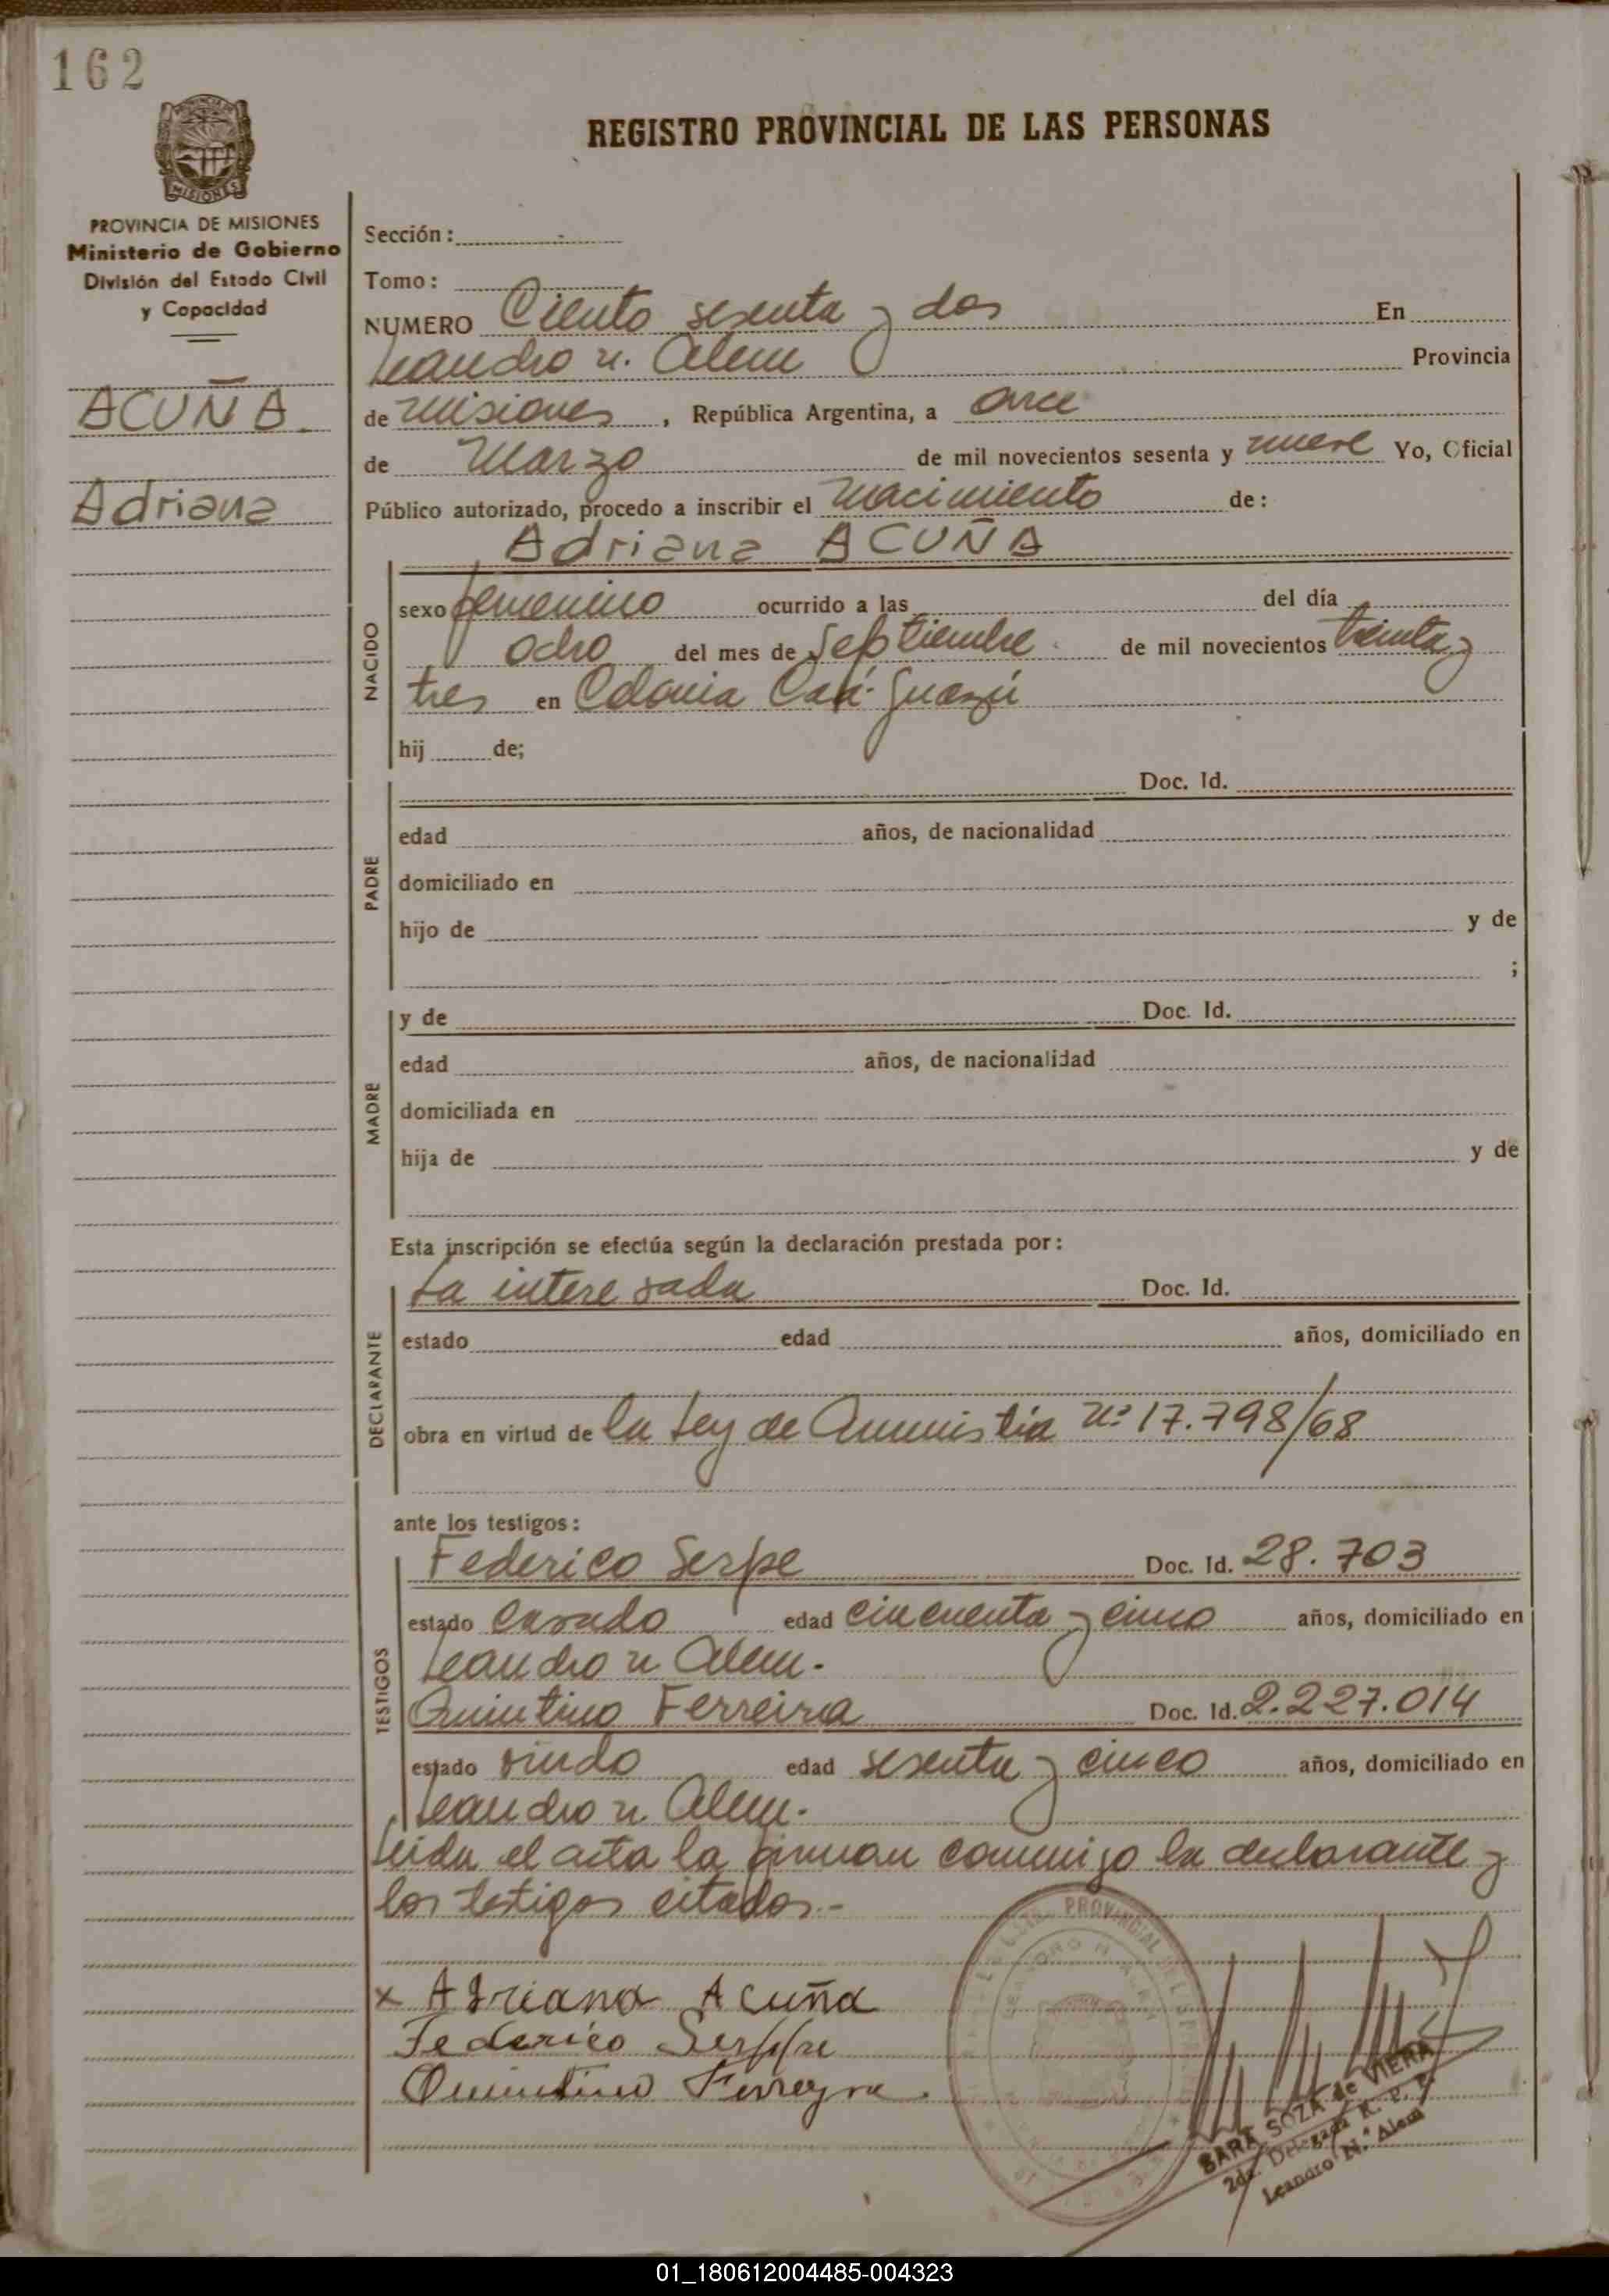 162
REGISTRO PROVINCIAL DE LAS PERSONAS
PROVINCIA DE MISIONES
Ministerio de Gobierno
División del Estado Civil
y Capacidad
ACUÑA
Adriana
Sección:
Tomo:
NUMERO Ciento sesenta y dos En
Leandro N. Alem Provincia
de Misiones, República Argentina, a once
de Marzo de mil novecientos sesenta y nueve Yo, Oficial
Público autorizado, procedo a inscribir el nacimiento de:
Adriana ACUÑA
NACIDO
sexo femenino ocurrido a las del día
ocho del mes de Septiembre de mil novecientos treinta y
tres en Colonia Caá-Guazú
hij de;
PADRE
Doc. Id.
edad años, de nacionalidad
domiciliado en
hijo de y de
;
MADRE
y de Doc. Id.
edad años, de nacionalidad
domiciliada en
hija de y de
Esta inscripción se efectúa según la declaración prestada por:
DECLARANTE
La interesada Doc. Id.
estado edad años, domiciliado en
obra en virtud de la Ley de Amnistía Nº 17.798/68
ante los testigos:
TESTIGOS
Federico Serpe Doc. Id. 28.703
estado casado edad cincuenta y cinco años, domiciliado en
Leandro N Alem.
Quintino Ferreira Doc. Id. 2.227.014
estado viudo edad sesenta y cinco años, domiciliado en
Leandro N Alem.
Leida el acta la firman conmigo la declarante y
los testigos citados.-
x Adriana Acuña
Federico Serppe
Quintino Ferreyra.
PROVINCIAL
SARA SOZA de VIERA
2da. Delegada R. P. P.
Leandro N. Alem
01_180612004485-004323